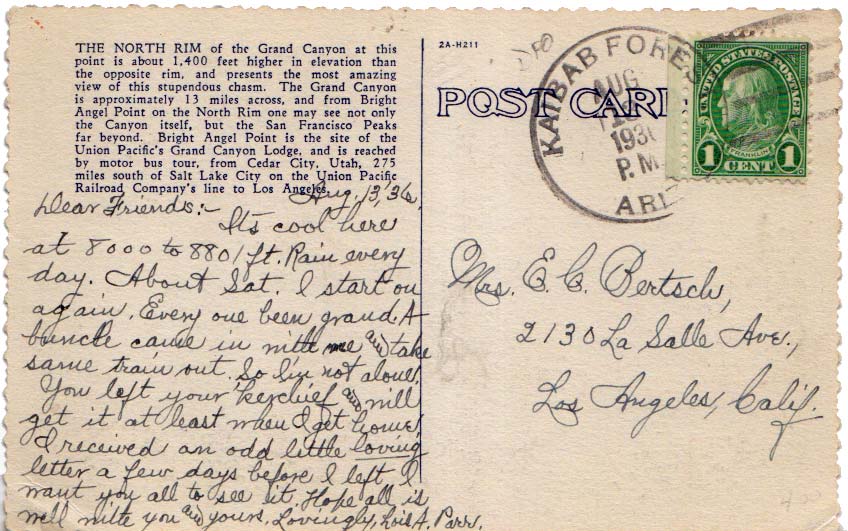 THE NORTH RIM of the Grand Canyon at this
point is about 1,400 feet higher in elevation than
the opposite rim, and presents the most amazing
view of this stupendous chasm. The Grand Canyon
is approximately 13 miles across, and from Bright
Angel Point on the North Rim one may see not only
the Canyon itself, but the San Francisco Peaks
far beyond. Bright Angel Point is the site of the
Union Pacific's Grand Canyon Lodge, and is reached
by motor bus tour, from Cedar City, Utah, 275
miles south of Salt Lake City on the Union Pacific
Railroad Company's line to Los Angeles.
Aug. 13, '36,
Dear Friends:-
It's cool here
at 8000 to 8801 ft. Rain every
day. About Sat. I start on
again. Every one been grand. A
bunch came in with me and take
same train out. So I'm not alone.
You left your kerchief and will
get it at least when I get home.
I received an odd little loving
letter a few days before I left I
want you all to see it. Hope all is
well with you and yours. Lovingly, Lois A. Parr.
2A-H211
POST CARD
KAIBAB FORES
AUG
193
P.M.
ARI
UNITED STATES POSTAGE
FRANKLIN
1 CENT 1
Mrs. E. C. Bertsch,
2130 La Salle Ave.,
Los Angeles, Calif.